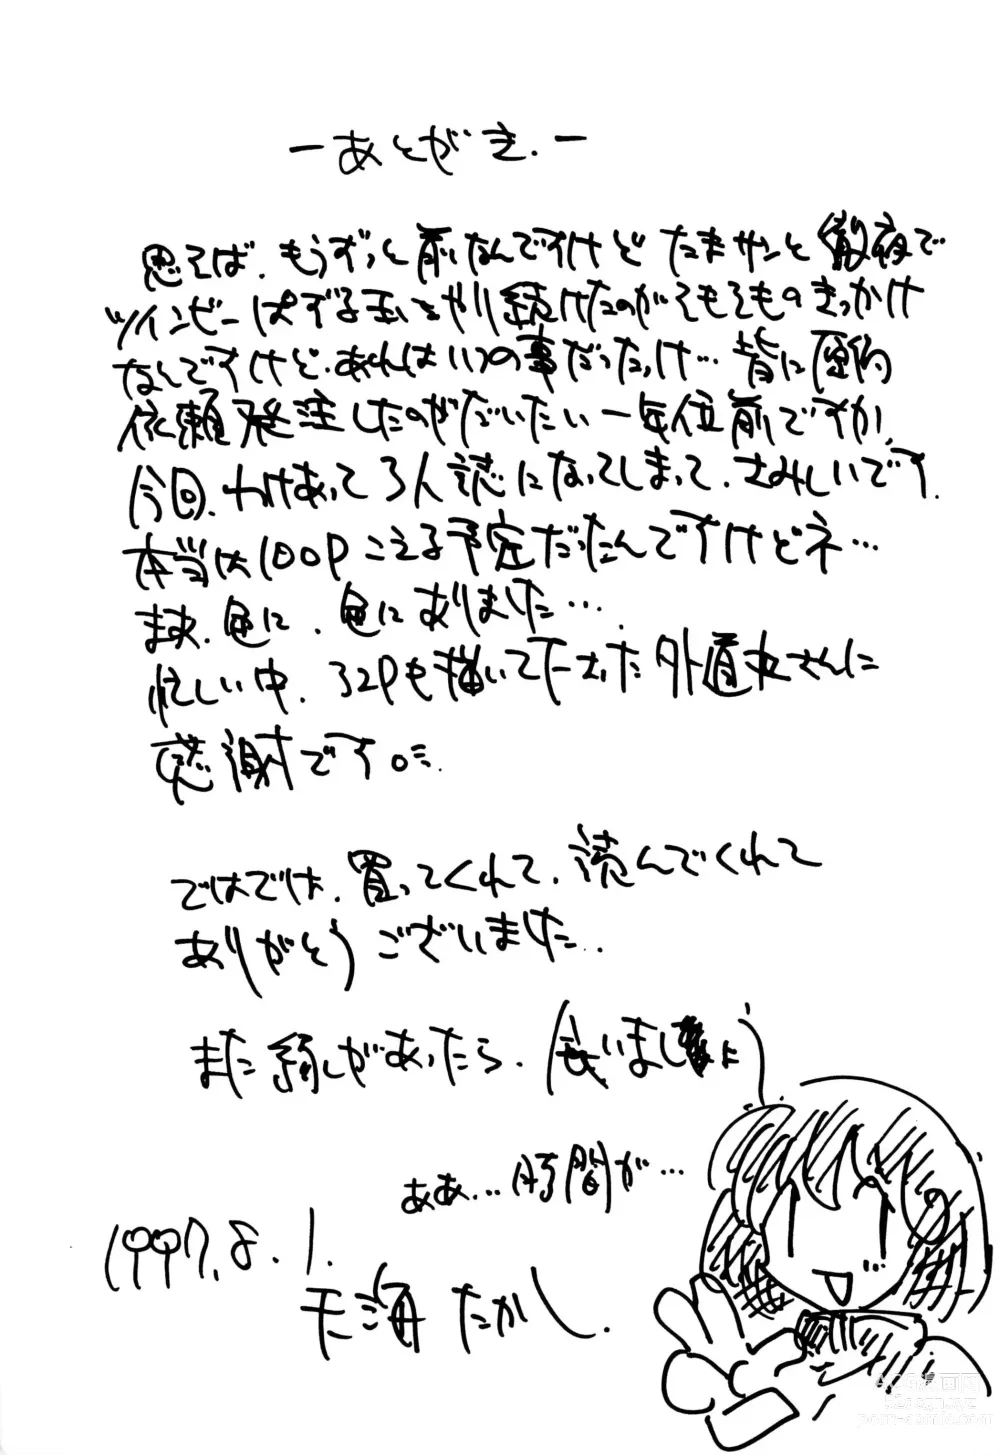 ーあとがき.ー
思えば、もうずっと前なんですけど たまサンと徹夜で
ツインビーぱずる玉をやり続けたのがそもそものきっかけ
なんですけど、あれはいつの事だったっけ… 皆に原稿
依頼発注したのがだいたい一年位前ですか、
今回、わけあって3人誌になってしまって、さみしいです.
本当は100Pこえる予定だったんですけどネ…
まあ、色々、色々ありました…
忙しい中、32Pも描いて下さった外道丸さんに
感謝です。
ではでは、買ってくれて、読んでくれて
ありがとうございました..
また縁があったら、会いましょ
ああ…時間が…
1997.8.1.
天海たかし.